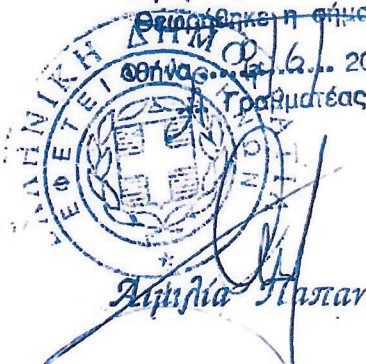 Θεωρήθηκε η σήμα
Αθήνα 6 20
Γραμματέας
ΕΛΛΗΝΙΚΗ ΔΗΜΟ
ΕΦΕΤΕΙ
Αιμιλία Παπαν